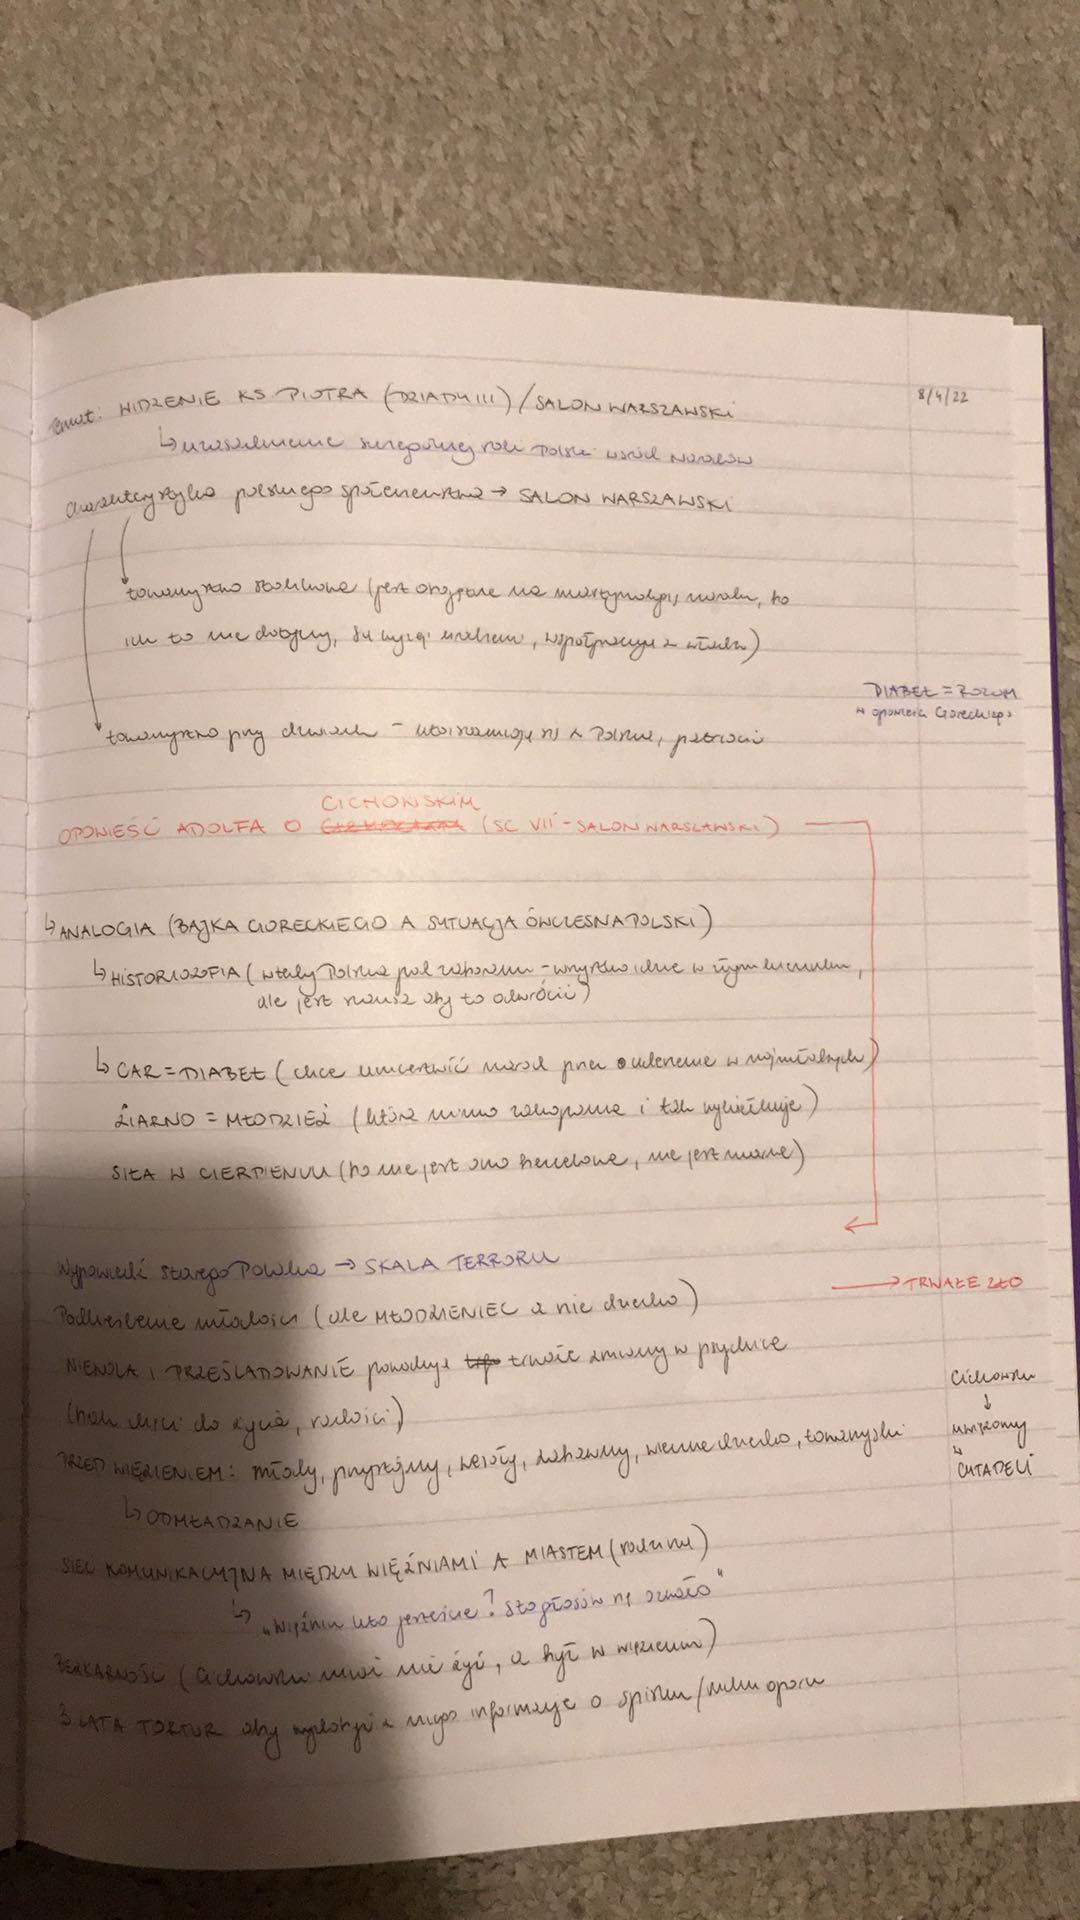 temat: WIDZENIE KS PIOTRA (DZIADY III) / SALON WARSZAWSKI
8/4/22
↳ uzasadnienie szczególnej roli Polski wśród narodów
charakterystyka polskiego społeczeństwa → SALON WARSZAWSKI
towarzystwo stolikowe (jest obojętne na martyrologię narodu, bo
ich to nie dotyczy, są wyżej, współpracuje z)
DIABEŁ = ROZUM
w opowieści Goreckiego
towarzystwo przy drzwiach - utożsamiają się z Polską, patrioci
CICHOWSKIM
OPOWIEŚĆ ADOLFA O (SC VII - SALON WARSZAWSKI)
↳ ANALOGIA (BAJKA GORECKIEGO A SYTUACJA ÓWCZESNA POLSKI)
↳ HISTORIOZOFIA (wtedy Polska pod zaborami - wszystko idzie w złym kierunku,
ale jest szansa aby to odwrócić)
↳ CAR = DIABEŁ (chce unicestwić naród przez uderzenie w najmłodszych)
ZIARNO = MŁODZIEŻ (która mimo zakopania i tak wykiełkuje)
SIŁA W CIERPIENIU (bo nie jest ono bezcelowe, nie jest marne)
Wypowiedź starego Polaka → SKALA TERRORU
→ TRWAŁE ZŁO
Podkreślenie młodości (ale MŁODZIENIEC a nie dziecko)
NIEWOLA I PRZEŚLADOWANIE powoduje trwałe zmiany w psychice
(brak chęci do życia, radości)
Cichowski
↓
uwięziony
w
CYTADELI
PRZED WIĘZIENIEM: młody, przystojny, wesoły, zabawny, wieczne dziecko, towarzyski
↳ ODMŁADZANIE
SIEĆ KOMUNIKACYJNA MIĘDZY WIĘŹNIAMI A MIASTEM (rodziną)
↳ „Więźniu kto jesteście? Sto głosów się ozwało"
BEZKARNOŚĆ (Cichowski miał nie żyć, a był w więzieniu)
3 LATA TORTUR aby z niego informacje o spisku/ruchu oporu